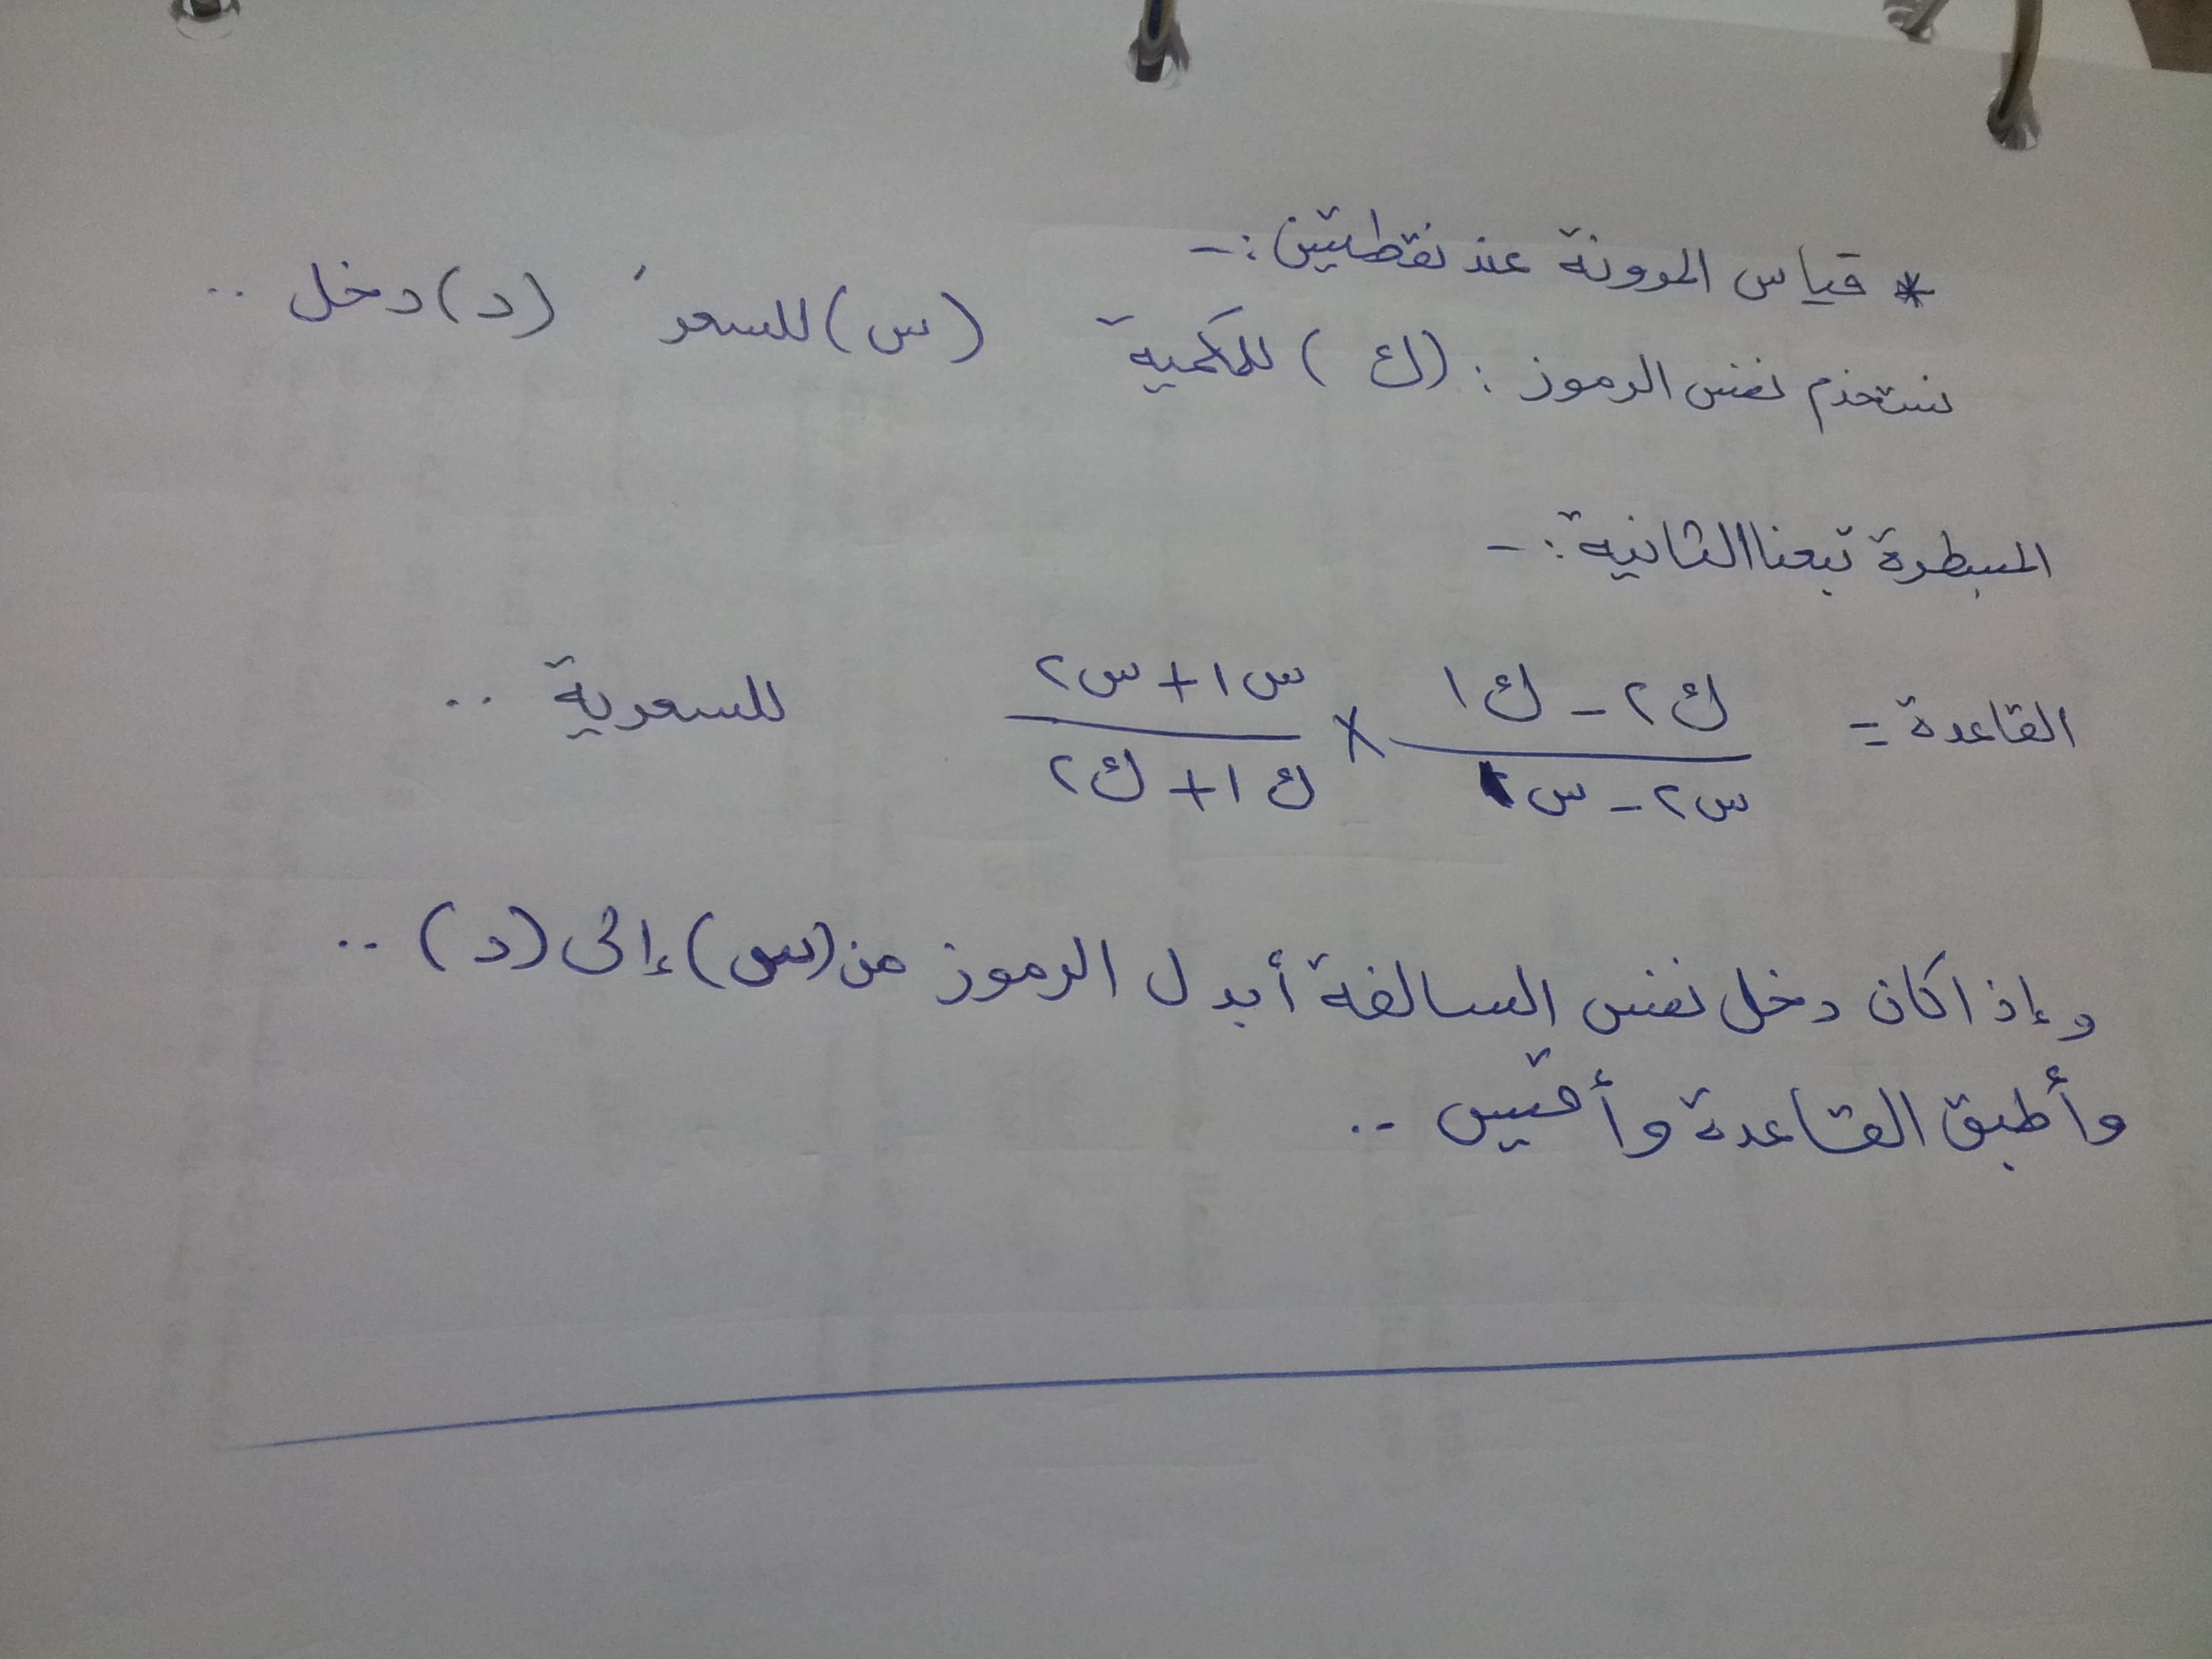 * قياس المرونة عند نقطتين :-
نستخدم نفس الرموز : (ك) للكمية (س) للسعر ، (د) دخل ..
المسطرة تبعنا الثانية :-
القاعدة = ك٢ - ك١ / س٢ - س١ × س١ + س٢ / ك١ + ك٢ للسعرية ..
وإذا كان دخل نفس السالفة أبدل الرموز من (س) إلى (د) ..
وأطبق القاعدة وأقيس ..